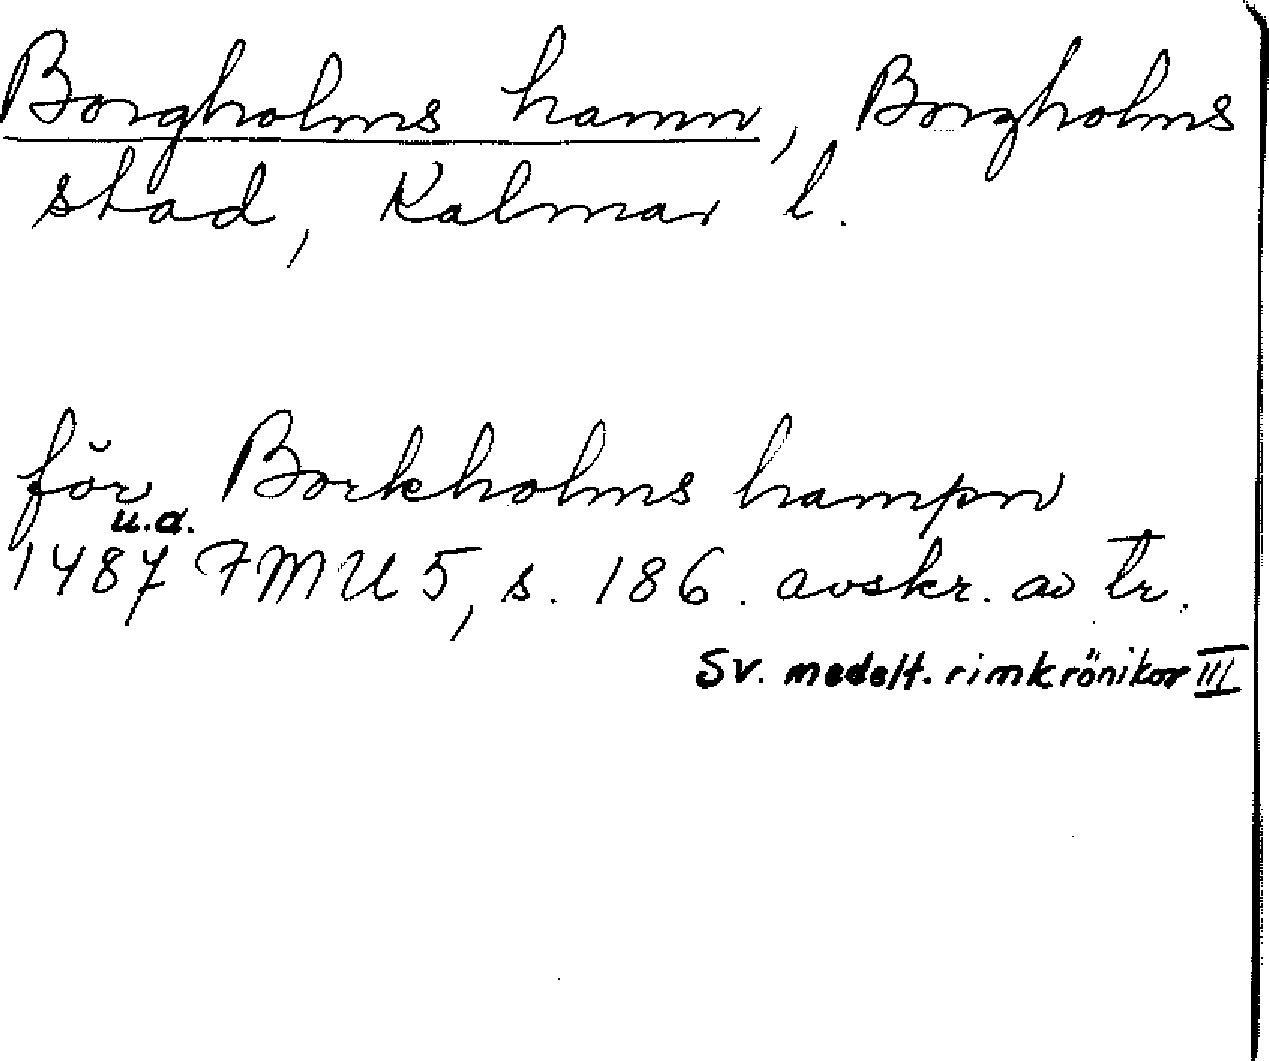 Borgholms hamn, Borgholms
stad, Kalmar l.
för Borkholms hampn
u.a.
1487 FMU 5, s. 186. avskr. av tr.
Sv. medelt. rimkrönikor III